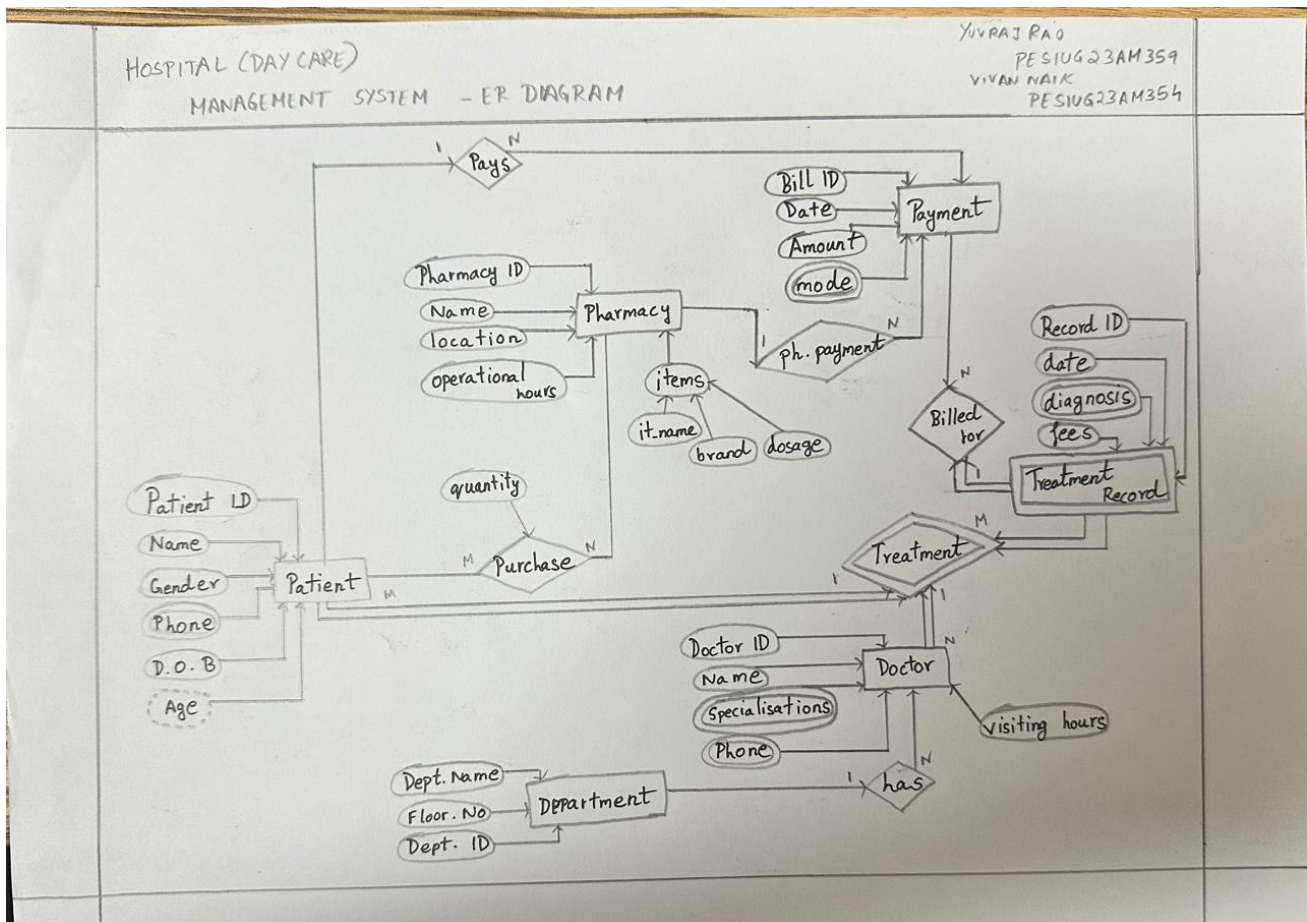 HOSPITAL (DAY CARE)
MANAGEMENT SYSTEM - ER DIAGRAM
YUVRAJ RAO
PES1UG23AM359
VIVAN NAIK
PES1UG23AM354
1
Pays
N
Bill ID
Date
Amount
mode
Payment
Pharmacy ID
Name
location
operational
hours
Pharmacy
items
it_name
brand
dosage
1
ph. payment
N
Record ID
date
diagnosis
fees
N
Billed
for
1
Treatment
Record
quantity
M
Purchase
N
Patient ID
Name
Gender
Phone
D.O.B
Age
Patient
M
M
Treatment
1
1
N
Doctor ID
Name
Specialisations
Phone
Doctor
visiting hours
Dept. Name
Floor. No
Dept. ID
DEPartment
1
has
N